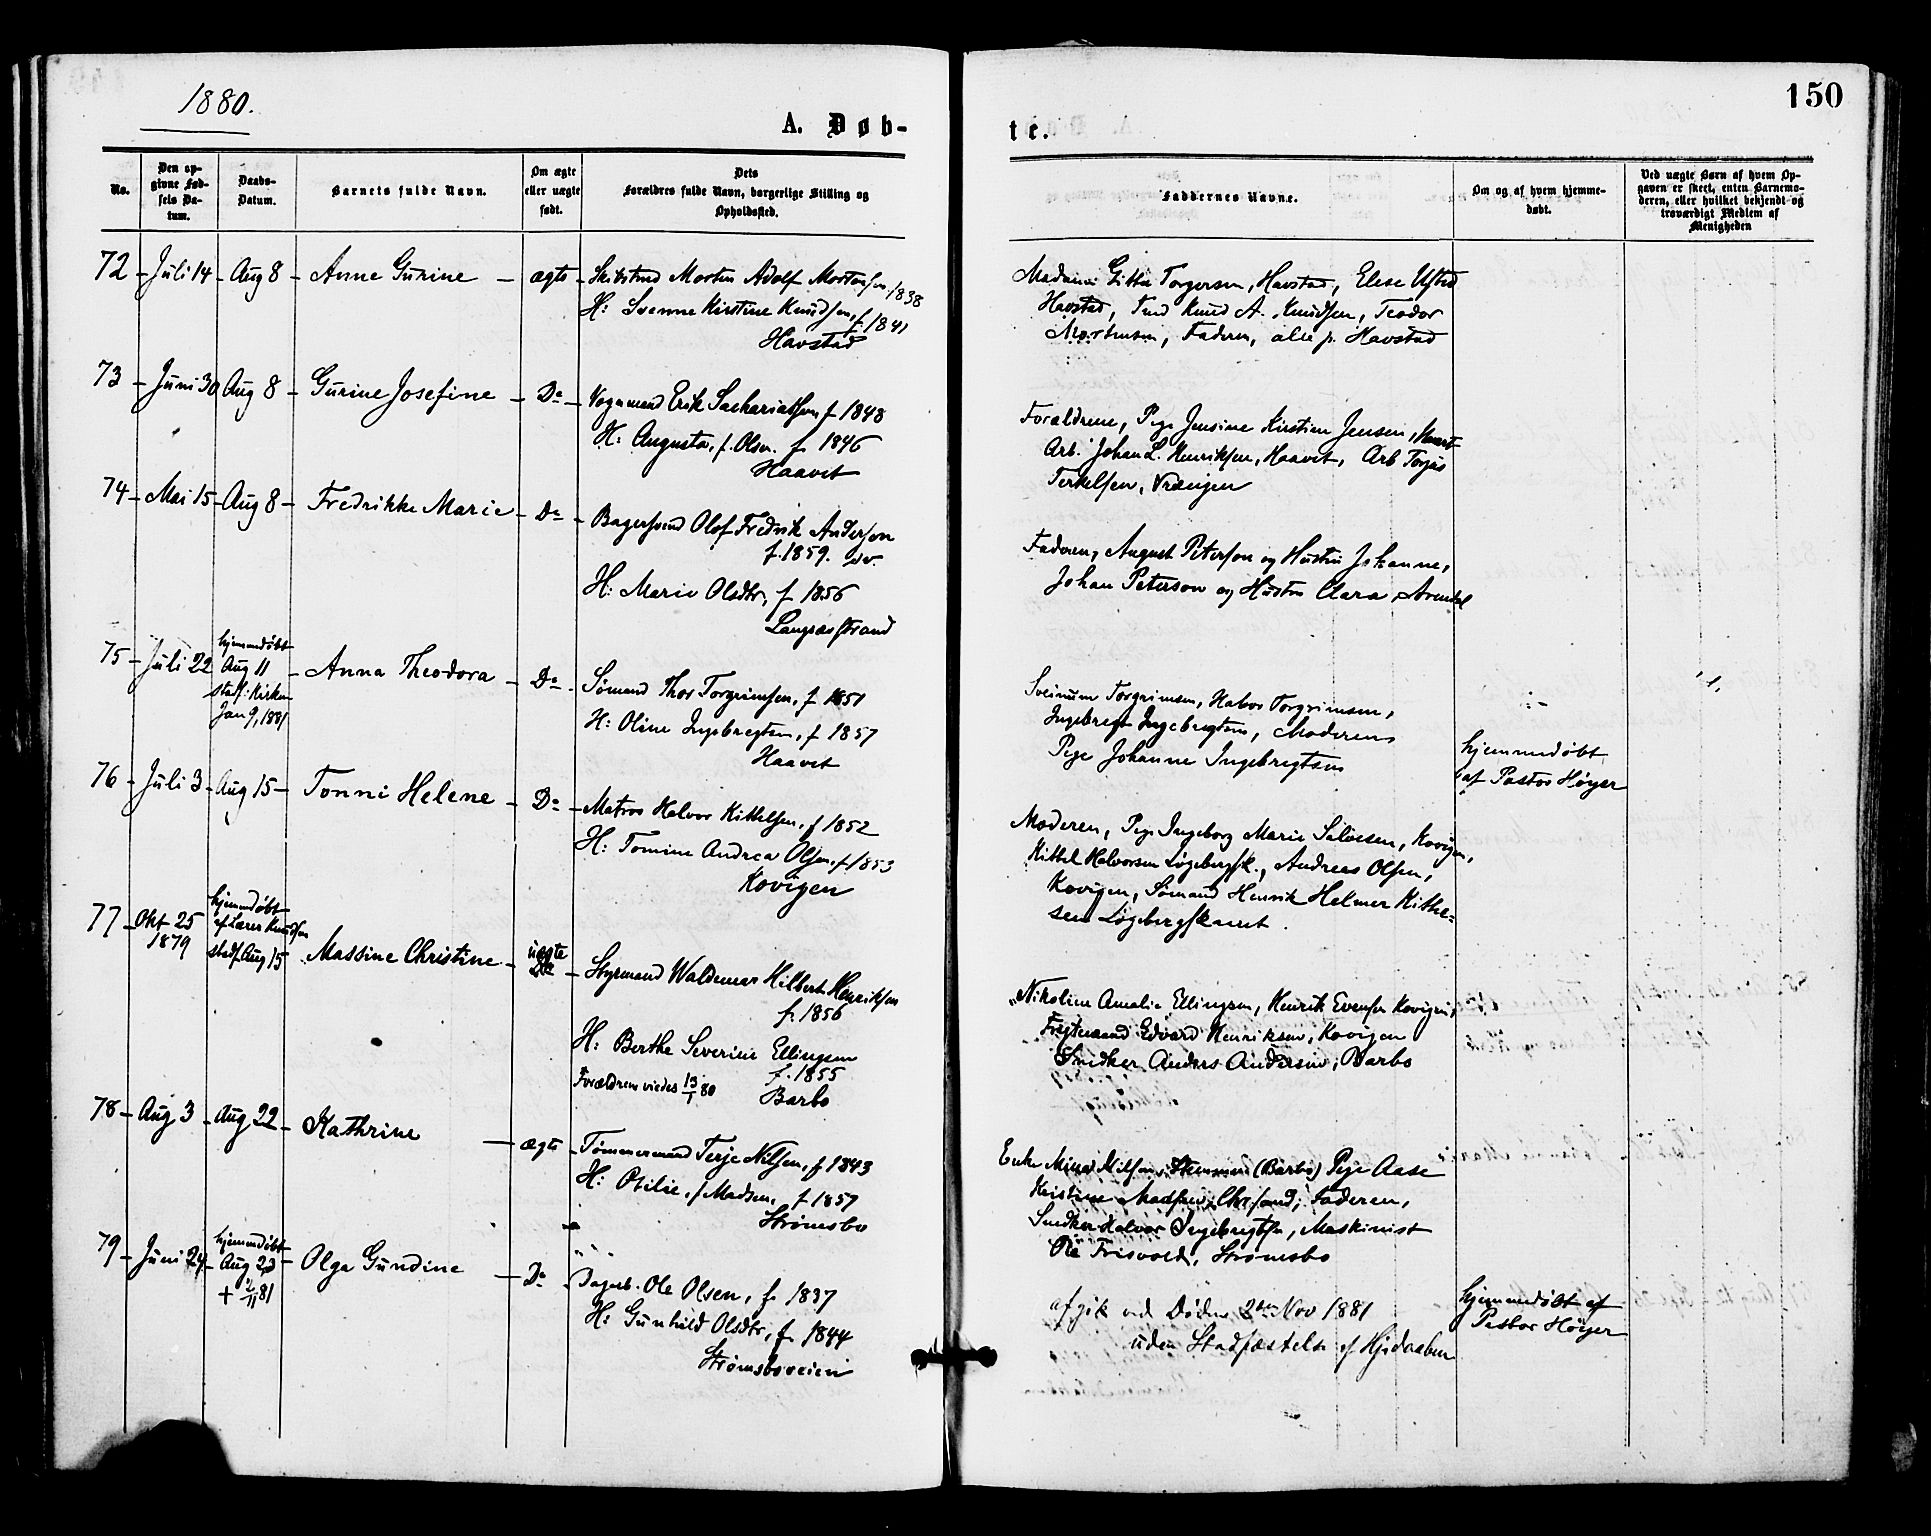 1880.
150
A. Døb-
te.
No.
Den op-
givne Fød-
sels Da-
tum.
Daabs-
Datum.
Barnets fulde Navn.
Om ægte
eller uægte
født.
Dets
Forældres fulde Navn, borgerlige Stilling og
Opholdssted.
Faddernes Navne.
Om og af hvem hjemme-
døbt.
Ved uægte Børn af hvem Op-
gaven er skeet, enten Barnemo-
deren, eller hvilket bekjendt og
troværdigt Medlem af
Menigheden
72 - Juli 14 - Aug 8 - Anne Gurine - ægte - Skibstmd Morten Adolf Mortensen f. 1838
H: Svenne Kirstine Knudsen, f. 1841
Havstad
Madame Gitta Torgersen, Havstad, Elise
Havstad, Tmd Knud A. Knudsen, Teodor
Mortensen, Faderen, alle p. Havstad
73 - Juni 30 Aug 8 - Gurine Josefine - Do - Vognmand Erik Sachariassen f 1848
H: Augusta, f. Olsen. f 1846
Haavet
Forældrene, Pige Jensine Kirstine Jensen,
Arb. Johan L. Henriksen, Haavet, Arb Torjus
Terkelsen, Vrængen
74 - Mai 15 - Aug 8 - Fredrikke Marie - Do - Bagersvend Olof Fredrik Anderson
f. 1859.
H: Marie Olsdtr, f 1856
Langsæstrand
Faderen, August Peterson og Hustru Johanne,
Johan Peterson og Hustru Clara, Arendal
75 - Juli 22
hjemmedøbt
Aug 11
stadf. i Kirken
Jan 9, 1881
- Anna Theodora - Do - Sømand Thor Torgrimsen, f 1851
H: Oline Ingebregtsen, f 1857
Haavet
Sveinum Torgrimsen, Halvor Torgrimsen,
Ingebregt Ingebregtsen, Moderens
Pige Johanne Ingebregtsen
hjemmedøbt
af Pastor Høyer
76 - Juli 3 - Aug 15 - Tonni Helene - Do - Matros Halvor Kittelsen, f 1852
H: Tomine Andrea Olsen, f 1853
Kovigen
Moderen, Pige Ingeborg Marie Salvesen, Kovigen,
Kittel Halvorsen Løgebergsk., Andreas Olsen,
Kovigen, Sømand Henrik Helmer Kittel-
sen Løgebergskaret.
77 - Okt 25
1879
hjemmedøbt
af Lærer Knudsen
stadf. Aug 15
Massine Christine - uægte - Styrmand Waldemar Hilbert Henriksen
f. 1856
H: Berthe Severine Ellingsen
f. 1855
Forældrene viedes 13/1 80 Barbo
Nikoline Amalie Ellingsen, Henrik Evensen Kovigen,
Edvard Henriksen, Kovigen
Snidker Anders Andersen, Barbo
78 - Aug 3 - Aug 22 - Kathrine - ægte - Tømmermand Terje Nilsen, f 1843
H: Otilie, f Madsen, f 1857
Strømsbo
Enke Nilsen, (Barbo) Pige Aase
Kristine Madsen, Chrsand; Faderen,
Snidker Halvor Ingebregtsen, Maskinist
Ole Frisvold, Strømsbo
79 - Juni 24
hjemmedøbt
Aug 23
+ 2/11 81
Olga Gundine - Do - Dagarb. Ole Olsen, f 1837
H: Gunhild Olsdtr, f 1844
Strømsboveien
afgik ved Døden 2den Nov 1881
uden Stadfæstelse af Hjdaaben
hjemmedøbt af
Pastor Høyer